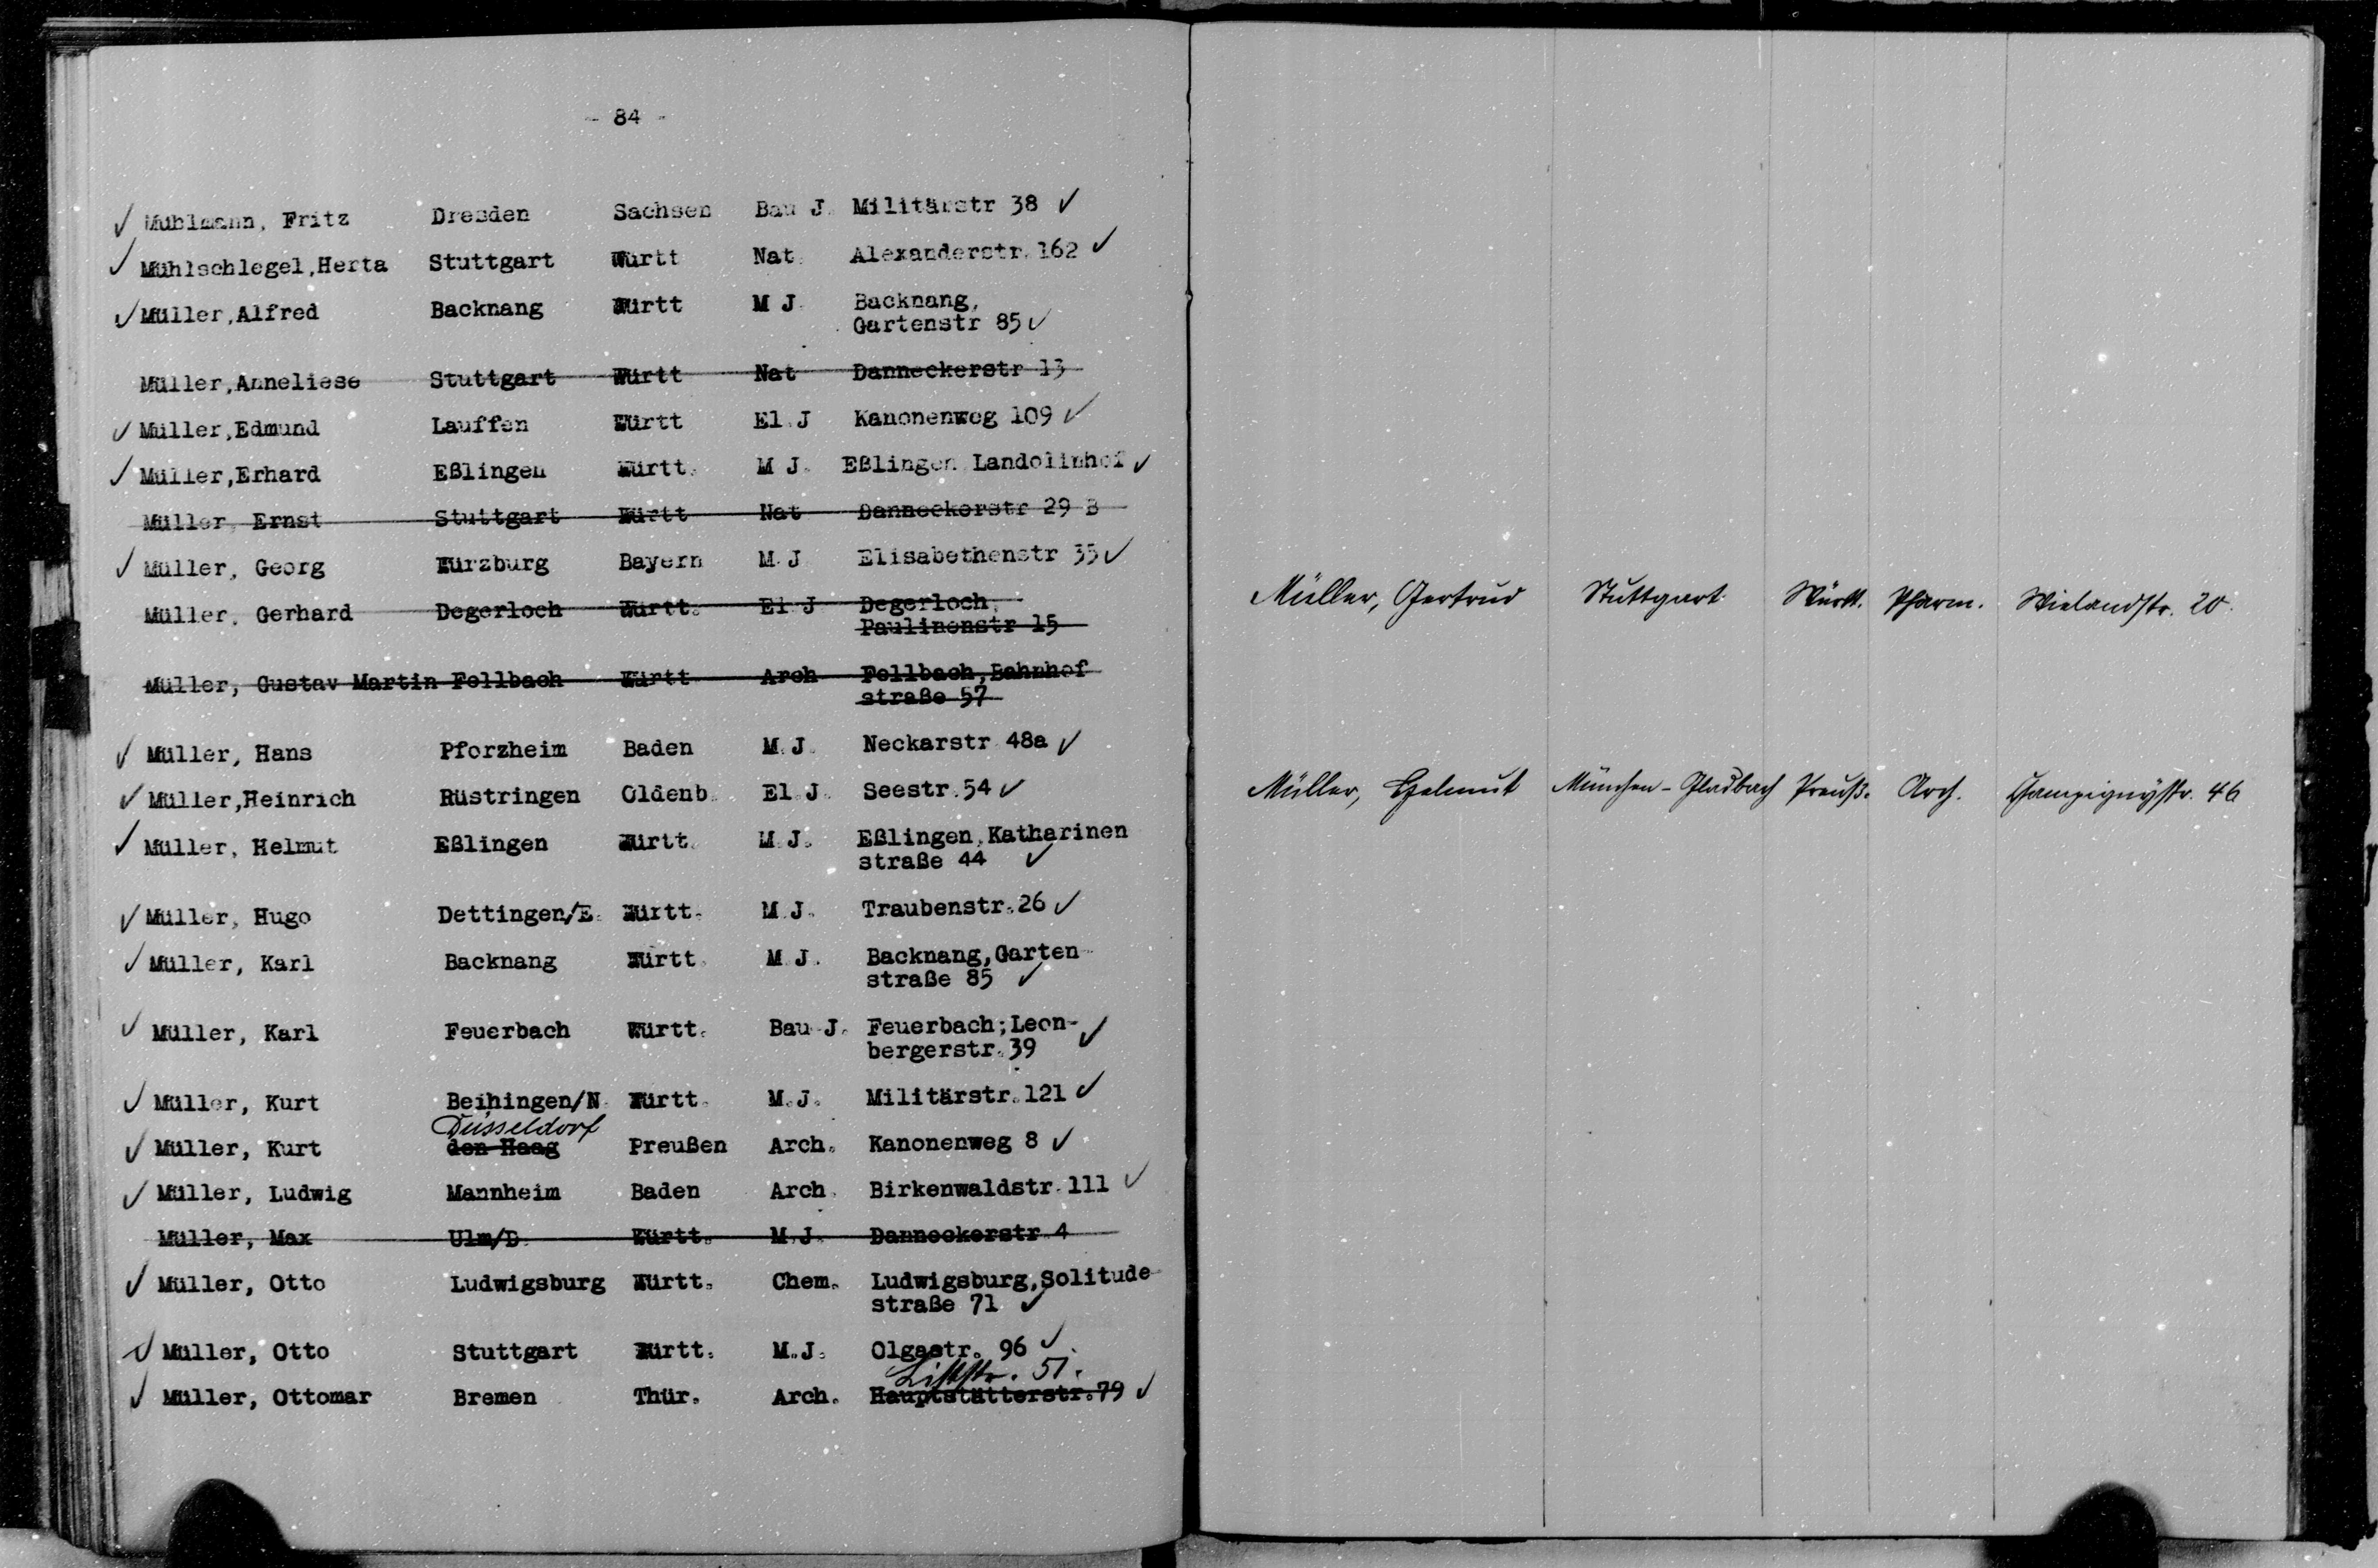 - 84 -
Mühlmann, Fritz Dresden Sachsen Bau J. Militärstr 38
Mühlschlegel,Herta Stuttgart Württ Nat. Alexanderstr.162
Müller,Alfred Backnang Württ M J. Backnang,
Gartenstr 85
Müller,Anneliese Stuttgart Württ Nat Danneckerstr 13
Müller,Edmund Lauffen Württ El.J Kanonenweg 109
Müller,Erhard Eßlingen Württ. M J. Eßlingen Landolinhof
Müller, Ernst Stuttgart Württ Nat Danneckerstr 29 B
Müller, Georg Würzburg Bayern M.J Elisabethenstr 35
Müller, Gerhard Degerloch Württ. El J Degerloch,
Paulinenstr 15
Müller, Gustav Martin Fellbach Württ Arch Fellbach,Bahnhof
straße 57
Müller, Hans Pforzheim Baden M.J. Neckarstr 48a
Müller,Heinrich Rüstringen Oldenb. El.J. Seestr.54
Müller, Helmut Eßlingen Württ. M.J. Eßlingen,Katharinen
straße 44
Müller, Hugo Dettingen/E. Württ. M.J. Traubenstr.26
Müller, Karl Backnang Württ. M.J. Backnang,Garten-
straße 85
Müller, Karl Feuerbach Württ. Bau-J. Feuerbach;Leon-
bergerstr.39
Müller, Kurt Beihingen/N. Württ. M.J. Militärstr.121
Düsseldorf
Müller, Kurt den Haag Preußen Arch. Kanonenweg 8
Müller, Ludwig Mannheim Baden Arch. Birkenwaldstr.111
Müller, Max Ulm/D. Württ. M.J. Danneckerstr.4
Müller, Otto Ludwigsburg Württ. Chem. Ludwigsburg,Solitude-
straße 71
Müller, Otto Stuttgart Württ. M.J. Olgastr. 96
Liststr. 51.
Müller, Ottomar Bremen Thür. Arch. Hauptstätterstr.79
Müller, Gertrud Stuttgart Württ. Pharm. Wielandstr. 20.
Müller, Helmut München-Gladbach Preuß. Arch. Champignystr. 46